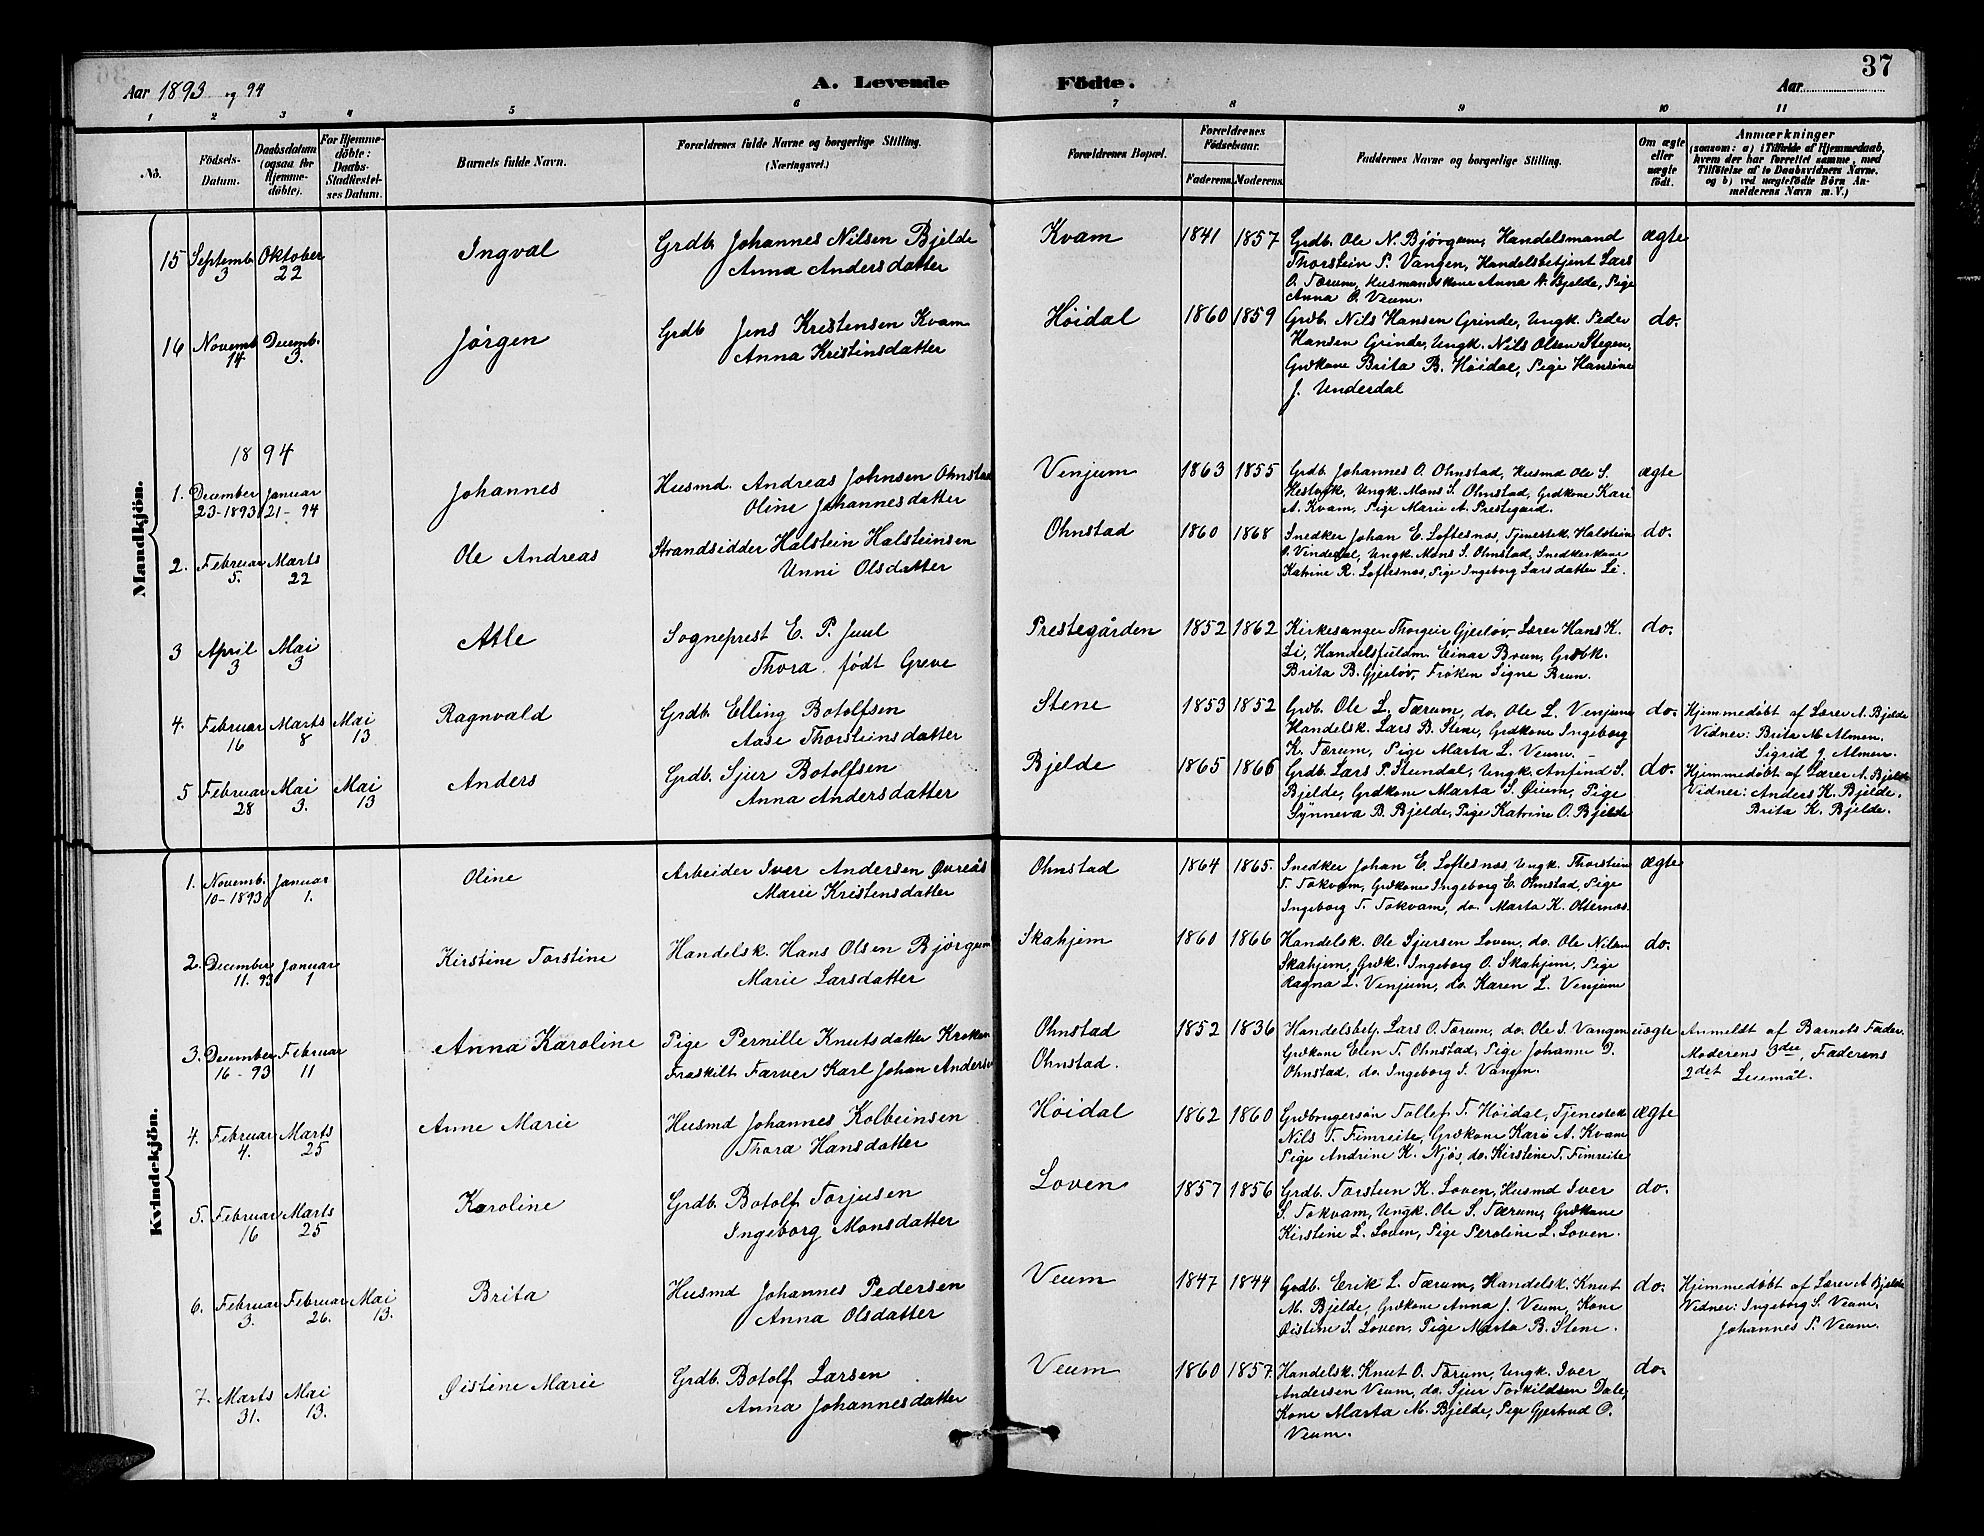 37
Aar 1893 og 94
A. Levende Födte.
Aar
1 2 3 4 5 6 7 8 9 10 11
No.
Födsels-Datum.
Daabsdatum (ogsaa for Hjemme-döbte).
For Hjemme-döbte: Daabs Stadfæstelses Datum.
Barnets fulde Navn.
Forældrenes fulde Navne og borgerlige Stilling.
(Næringsvei.)
Forældrenes Bopæl.
Forældrenes Födselsaar.
Faderens. Moderens.
Faddernes Navne og borgerlige Stilling.
Om ægte eller uægte födt.
Anmærkninger
(saasom: a) i Tilfælde af Hjemmedaab, hvem der har forrettet samme, med Tilföielse af to Daabsvidners Navne. og b) ved uægtefödte Börn Anmelderens Navn m. V.)
Mandkjön.
15 Septemb. 3 Oktober 22 Ingval Grdb. Johannes Nilsen Bjelde
Anna Andersdatter
Kvam 1841 1857 Grdb. Ole N. Bjørgum, Handelsmand
Thorstein P. Vangen, Handelsbetjent Lars
O. Tærum, Husmandskone Anna K. Bjelde, Pige
Anna O. Veum.
ægte
16 Novemb. 14 Decemb. 3. Jørgen Grdb Jens Kristensen Kvam
Anna Kristinsdatter
Høidal 1860 1859 Grdb. Nils Hansen Grinde, Ungk. Peder
Hansen Grinde, Ungk. Nils Olsen Stegen,
Grdkone Brita B. Høidal, Pige Hansine
J. Underdal
do.
1894
1. December 23-1893 Januar 21-94 Johannes Husmd. Andreas Johnsen Ohnstad
Oline Johannesdatter
Venjum 1863 1855 Grdb. Johannes O. Ohnstad, Husmd Ole S.
Hestvik, Ungk. Mons S. Ohnstad, Grdkone Kari
A. Kvam, Pige Marie A. Prestegard.
ægte
2. Februar 5. Marts 22 Ole Andreas Strandsidder Halstein Halsteinsen
Unni Olsdatter
Ohnstad 1860 1868 Snedker Johan E. Loftesnæs, Tjenestek. Halstein
O. Vindedal, Ungk. Mons S. Ohnstad, Snedkerkone
Katrine R. Loftesnæs, Pige Ingeborg Larsdatter Li.
do.
3 April 3 Mai 3 Atle Sogneprest E. P. Juul
Thora født Greve
Prestegården 1852 1862 Kirkesanger Thorgeir Gjesløv, Lærer Hans K.
Li, Handelsfuldm. Einar Brun, Grdbk.
Brita B. Gjesløv, Frøken Signe Brun.
do.
4. Februar 16 Marts 8 Mai 13 Ragnvald Grdb. Elling Botolfsen
Aase Thorsteinsdatter
Stene 1853 1852 Grdb. Ole L. Tærum, do. Ole L. Venjum
Handelsk. Lars B. Stene, Grdkone Ingeborg
K. Tærum, Pige Marta L. Veum.
do. Hjemmedøbt af Lærer A. Bjelde
Vidner: Brita M. Almen.
Sigrid J. Almen.
5 Februar 28 Mai 3. Mai 13 Anders Grdb. Sjur Botolfsen
Anna Andersdatter
Bjelde 1865 1866 Grdb. Lars P. Stundal, Ungk. Anfind S.
Bjelde, Grdkone Marta S. Øium, Pige
Synneva B. Bjelde, Pige Katrine O. Bjelde
do. Hjemmedøbt af Lærer A. Bjelde
Vidner: Anders K. Bjelde.
Brita K. Bjelde.
Kvindekjön.
1. Novemb. 10-1893 Januar 1. Oline Arbeider Iver Andersen Øvreås
Marie Kristensdatter
Ohnstad 1864 1865. Snedker Johan E. Loftesnæs, Ungk. Thorstein
T. Tokvam, Grdkone Ingeborg E. Ohnstad, Pige
Ingeborg T. Tokvam, do. Marta K. Olternæs.
ægte
2. December 11. 93 Januar 1 Kirstine Torstine Handelsk. Hans Olsen Bjørgum
Marie Larsdatter
Skahjem 1860 1866 Handelsk. Ole Sjursen Loven, do. Ole Nilsen
Skahjem, Grdk. Ingeborg O. Skahjem, Pige
Ragna L. Venjum, do. Karen L. Venjum
do.
3. December 16-93 Februar 11 Anna Karoline Pige Pernille Knutsdatter Kroken
Fraskilt Farver Karl Johan Anders
Ohnstad
Ohnstad.
1852 1836 Handelsbetj. Lars O. Tærum, do. Ole S. Vangen
Grdkone Elen T. Ohnstad, Pige Johanne D.
Ohnstad, do. Ingeborg S. Vangen.
uægte Anmeldt af Barnets Fader.
Moderens 3die, Faderens
2det Leiemål.
4. Februar 4. Marts 25 Anne Marie Husmd Johannes Kolbeinsen
Thora Hansdatter
Høidal 1862 1860 Grdbrugersøn Tollef T. Høidal, Tjenestek
Nils T. Fimreite, Grdkone Kari A. Kvam
Pige Andrine K. Njøs, do. Kirstine T. Fimreite
ægte
5. Februar 16 Marts 25 Karoline Grdb. Botolf Torjusen
Ingeborg Monsdatter
Loven 1857 1856 Grdb. Torstein K. Loven, Husmd Iver
S. Tokvam, Ungk. Ole S. Tærum, Grdkone
Kirstine L. Loven, Pige Peroline L. Loven.
do.
6. Februar 3. Februar 26. Mai 13. Brita Husmd Johannes Pedersen
Anna Olsdatter
Veum 1847 1844 Grdb. Erik L. Tærum, Handelsk. Knut
M. Bjelde, Grdkone Anna J. Veum, Kone
Øistine S. Loven, Pige Marta B. Stene.
do. Hjemmedøbt af Lærer A. Bjelde
Vidner: Ingeborg S. Veum,
Johannes P. Veum.
7. Marts 31. Mai 13. Øistine Marie Grdb. Botolf Larsen
Anna Johannesdatter
Veum 1860 1857. Handelsk. Knut O. Tærum, Ungk. Iver
Andersen Veum, do. Sjur Torkildsen Dale,
Kone Marta M. Bjelde, Pige Gjertrud O.
Veum.
do.